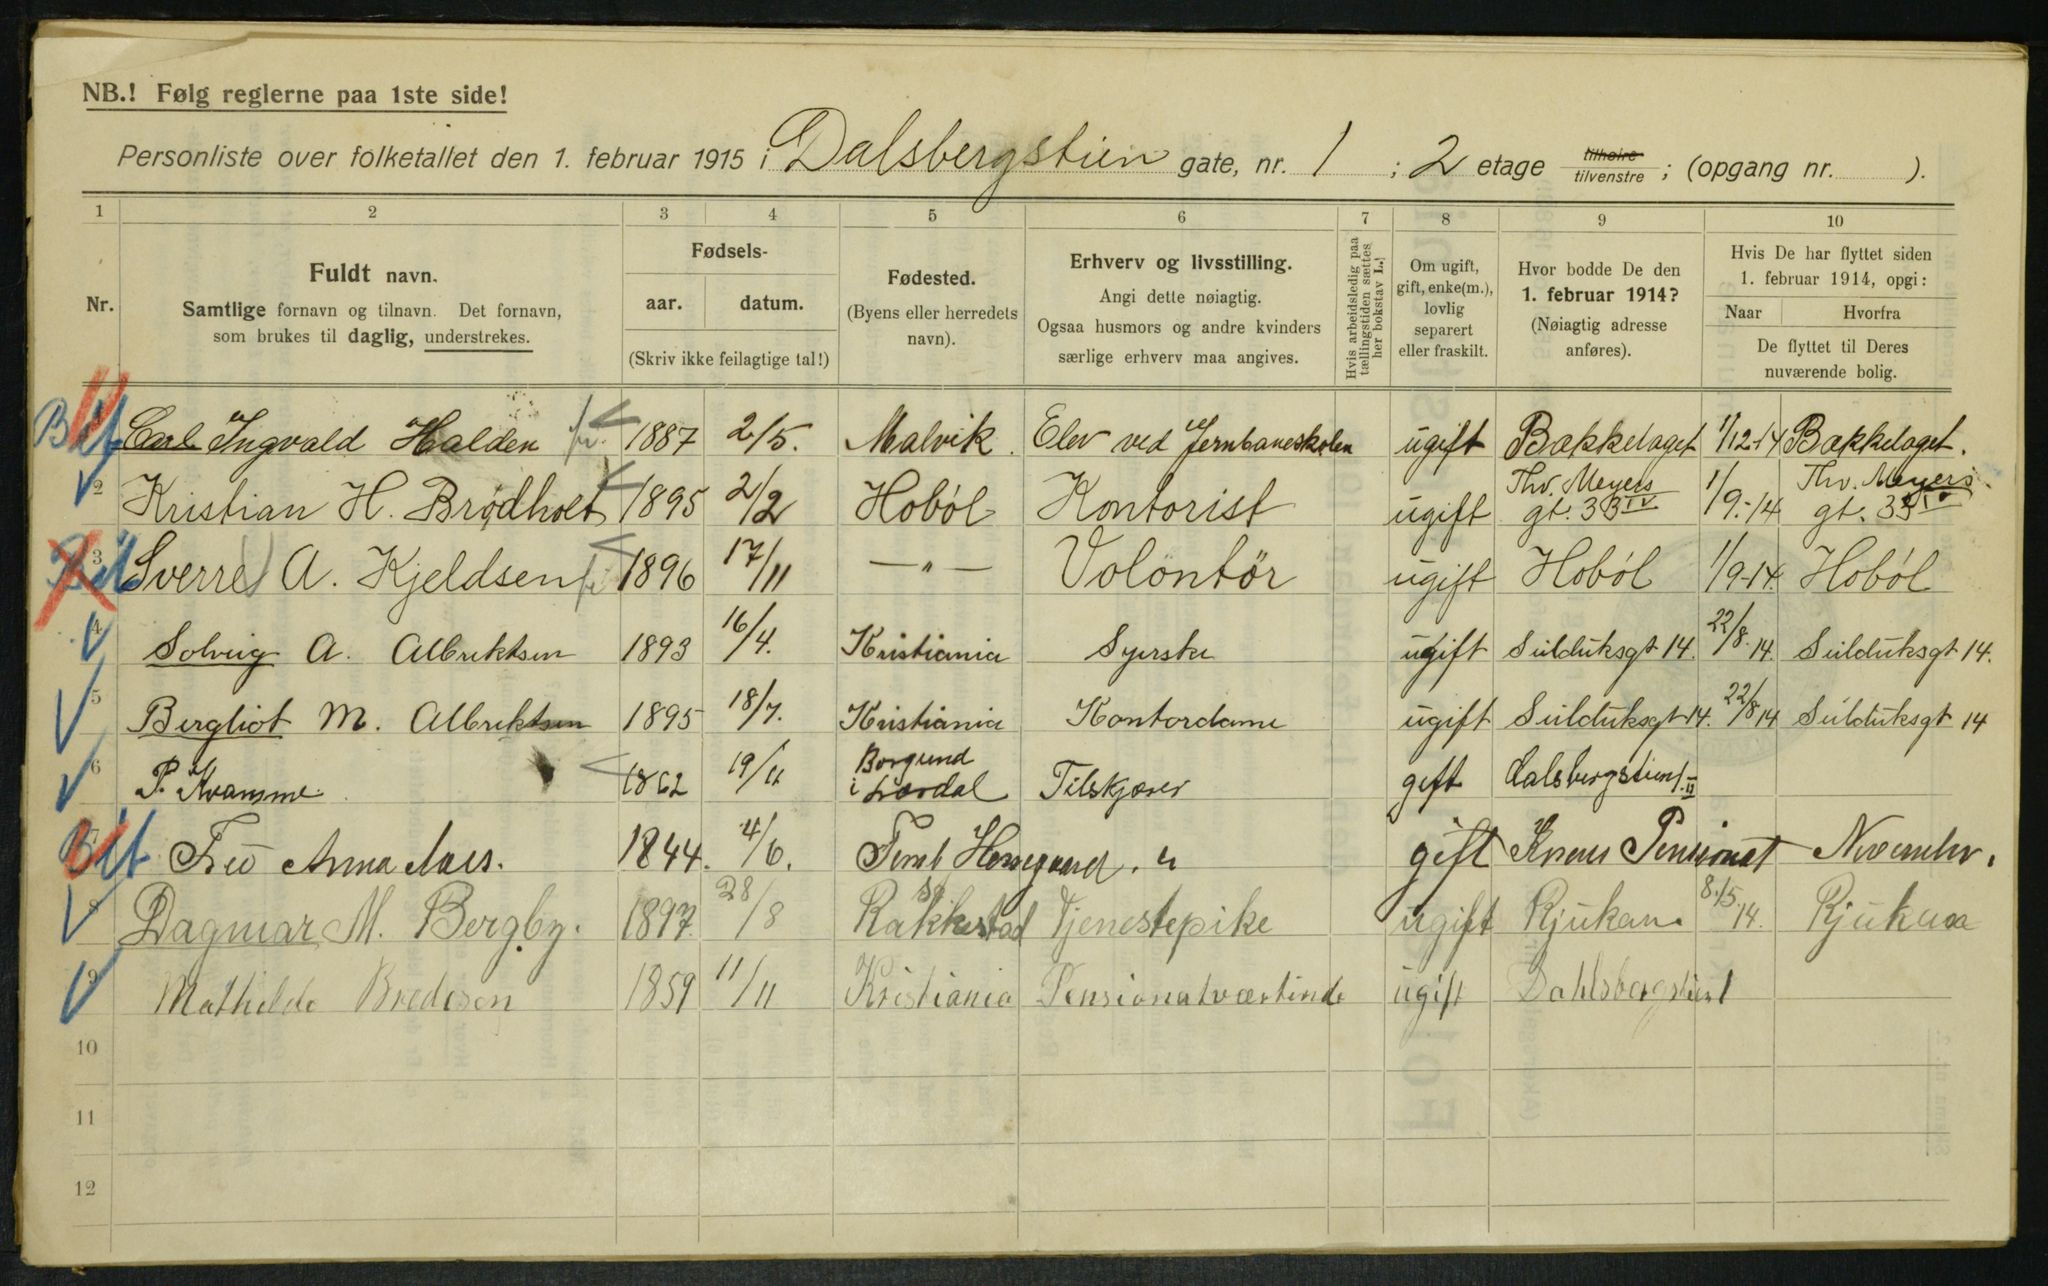 NB.! Følg reglerne paa 1ste side!
Personliste over folketallet den 1. februar 1915 i Dalsbergstien gate, nr. 1 ; 2 etage tilhøire tilvenstre ; (opgang nr. ).
1 2 3 4 5 6 7 8 9 10
Nr.
Fuldt navn.
Samtlige fornavn og tilnavn. Det fornavn,
som brukes til daglig, understrekes.
Fødsels-
aar. datum.
(Skriv ikke feilagtige tal!)
Fødested.
(Byens eller herredets
navn).
Erhverv og livsstilling.
Angi dette nøiagtig.
Ogsaa husmors og andre kvinders
særlige erhverv maa angives.
Hvis arbeidsledig paa
tællingstiden sættes
her bokstav L.
Om ugift,
gift, enke(m.),
lovlig
separert
eller fraskilt.
Hvor bodde De den
1. februar 1914?
(Nøiagtig adresse
anføres).
Hvis De har flyttet siden
1. februar 1914, opgi:
Naar Hvorfra
De flyttet til Deres
nuværende bolig.
Carl Ingvald Halden 1887 2/5. Malvik. Elev ved Jernbaneskolen ugift Bækkelaget 1/12-14 Bækkelaget.
2 Kristian H. Brødholt 1895 2/2 Hoból Kontorist ugift Thv. Meyers gt. 33 IV 1/9.-14 Thv. Meyers gt. 33 IV
3 Sverre A. Kjeldsen 1896 17/11 — „ — Volontör ugift Hoból 1/9-14. Hoból
4 Solveig A. Albriktsen 1893 16/4. Kristiania Syerske ugift Sulduksgt 14. 22/8.14. Sulduksgt 14.
5 Bergliot M. Albriktsen 1895 18/7. Kristiania Kontordame ugift Sulduksgt 14. 22/8 14 Sulduksgt 14
6 P. Kvamme. 1862 19/11 Borgund i Lærdal Tilskjærer gift Dalsbergstien 1. II
7 Anna 1844. 4/6. gift Pensionat Novembr.
8 Dagmar M. Bergby. 1897. 28/8 Rakkestad Tjenestepike ugift Rjukan. 8/5.14. Rjukan
9 Mathilde Bredesen 1859 11/11 Kristiania Pensionatværtinde ugift Dahlsbergstien 1
10
11
12